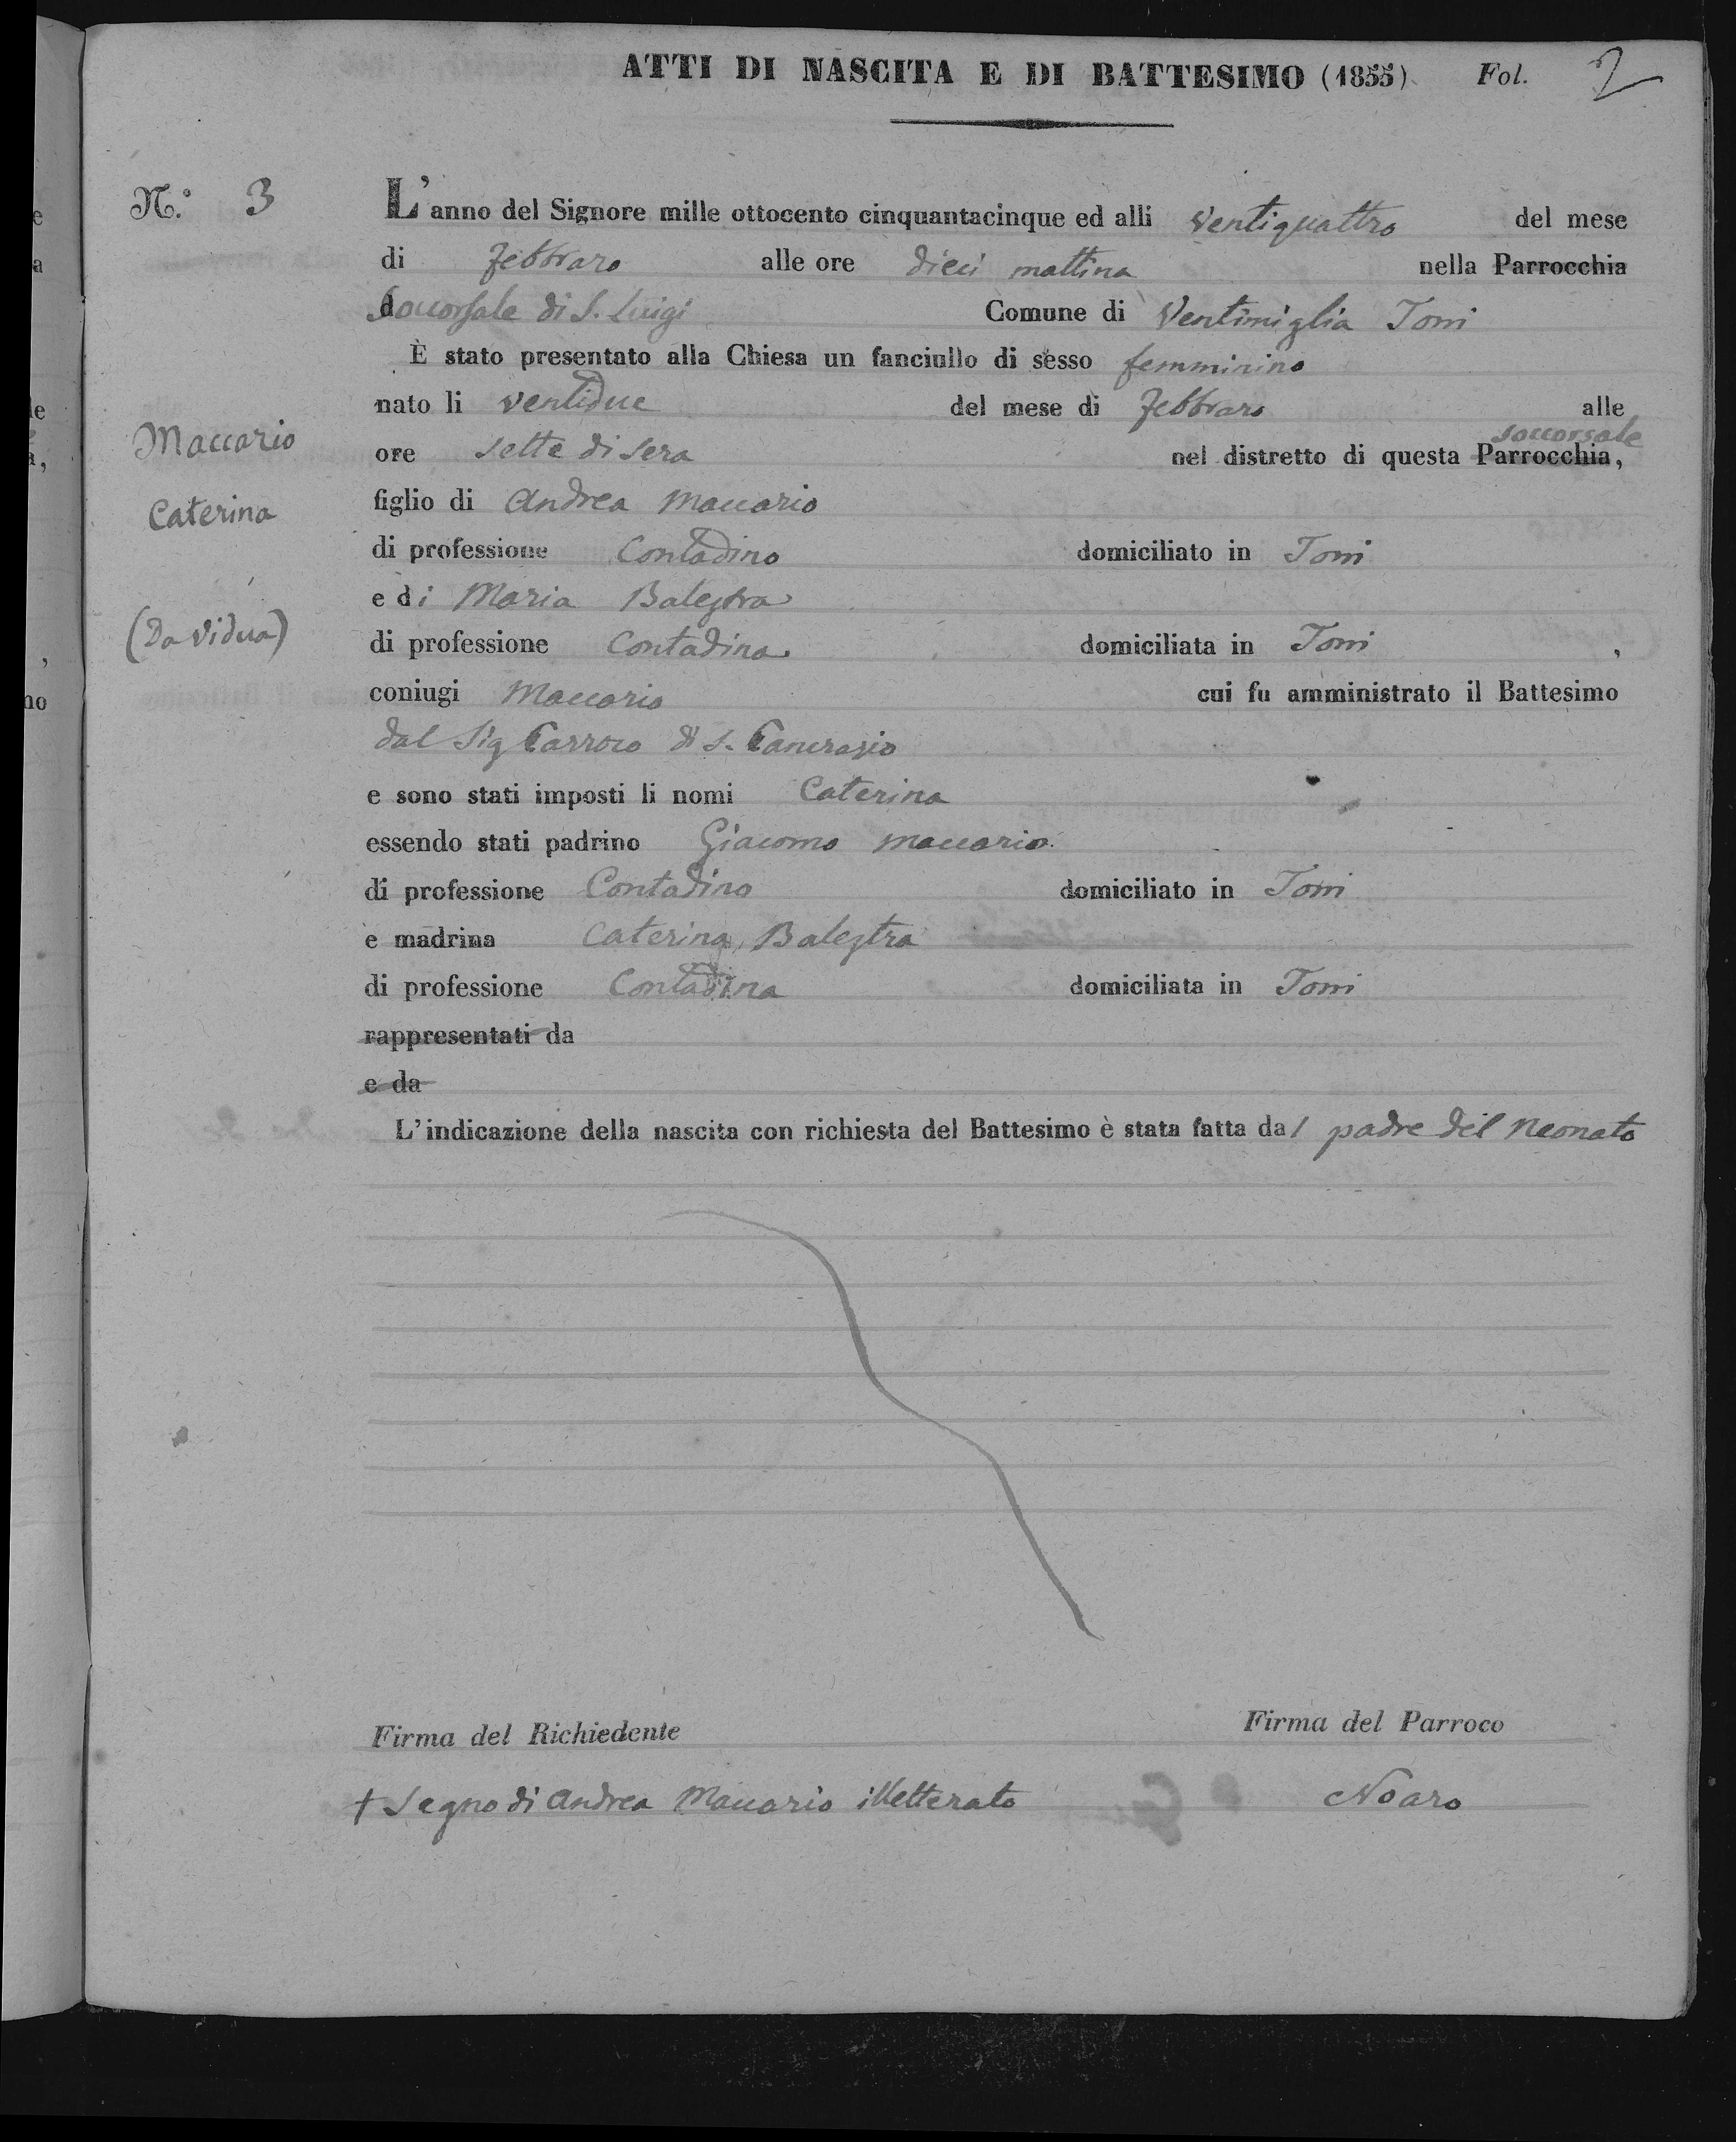 ATTI DI NASCITA E DI BATTESIMO (1855) Fol. 2
N.º 3
L'anno del Signore mille ottocento cinquantacinque ed alli ventiquattro del mese
di febbraro alle ore dieci mattina nella Parrocchia
soccorsale di S. Luigi Comune di Ventimiglia Torri
È stato presentato alla Chiesa un fanciullo di sesso femminino
nato li ventidue del mese di febbraro alle
soccorsale
ore sette di sera nel distretto di questa Parrocchia,
Maccario
figlio di Andrea Maccario
Caterina
di professione Contadino domiciliato in Torri
e di Maria Balestra
(Da vidua)
di professione Contadina domiciliata in Torri ,
coniugi Maccario cui fu amministrato il Battesimo
dal Sig Parroco di S. Pancrazio
e sono stati imposti li nomi Caterina
essendo stati padrino Giacomo Maccario
di professione Contadino domiciliato in Torri
e madrina Caterina Balestra
di professione Contadina domiciliata in Torri
rappresentati da
e da
L'indicazione della nascita con richiesta del Battesimo è stata fatta dal padre del Neonato
Firma del Richiedente Firma del Parroco
† Segno di Andrea Maccario illetterato Noaro